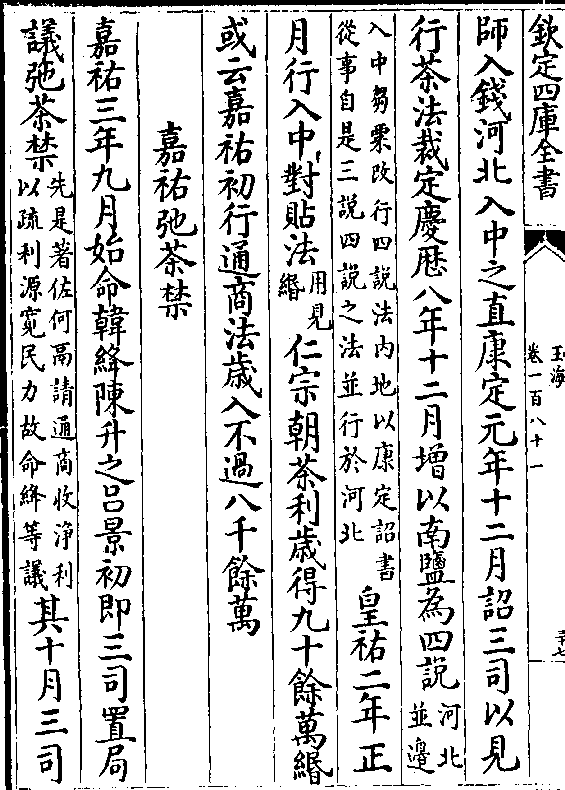 欽定四庫全書
玉海
卷一百八十一
師入錢河北入中之直康定元年十二月詔三司以見
行茶法裁定慶厯八年十二月増以南鹽為四説
河北
並邊
入中芻粟改行四説法内地以康定詔書
從事自是三説四説之法並行於河北
皇祐二年正
月行入中對貼法
用見
緡
仁宗朝茶利歳得九十餘萬緡
或云嘉祐初行通商法歳入不過八千餘萬
嘉祐弛茶禁
嘉祐三年九月始命韓絳陳升之吕景初即三司置局
議弛茶禁
先是著佐何鬲請通商收浄利
以疏利源寛民力故命絳等議
其十月三司